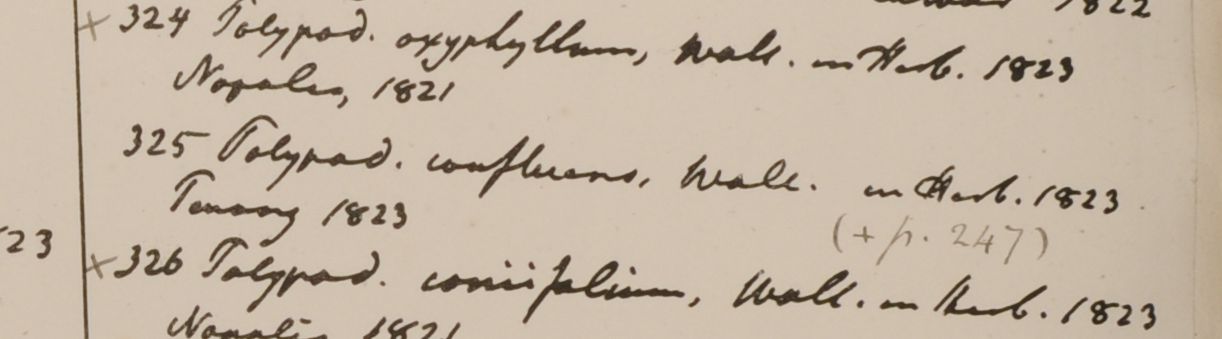 1822
× 324 Polypod. oxyphyllum, Wall. in Herb. 1823
Napalia, 1821
325 Polypod. confluens, Wall. in Herb. 1823
Penang 1823
(+ p. 247)
23
× 326 Polypod. coniifolium, Wall. in Herb. 1823
Napalia 1821